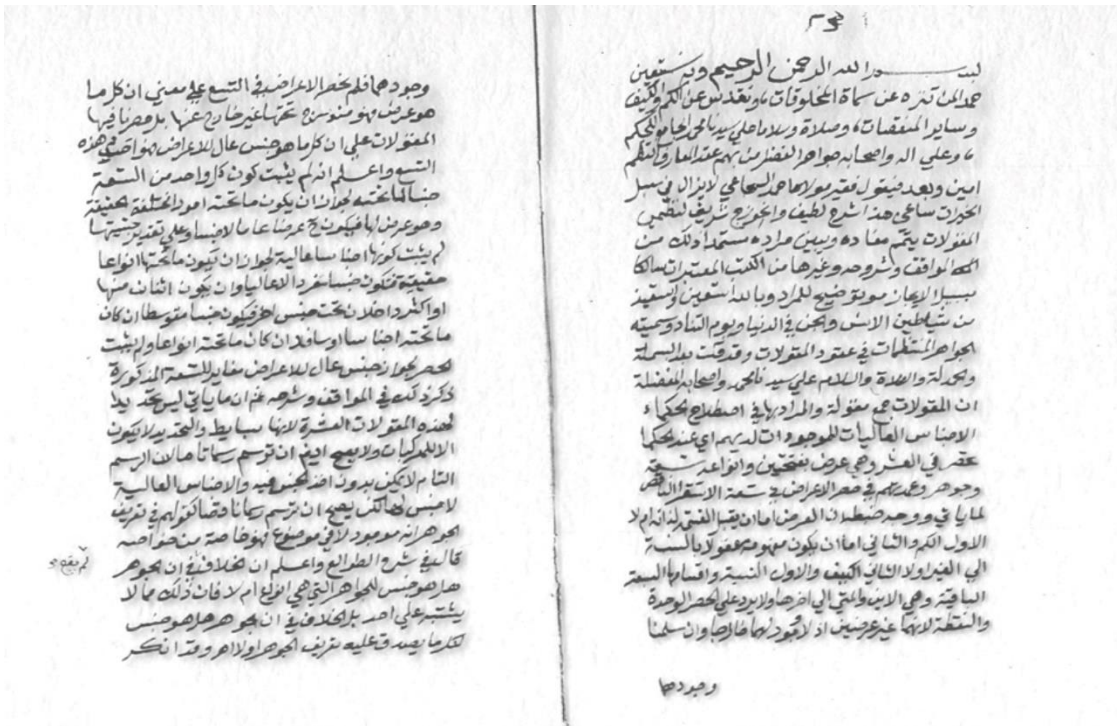 بسم الله الرحمن الرحيم وبه نستعين
حمدا لمن تنزه عن سماة المخلوقات وتقدس عن الكم والكيف
وساير المنقصات وصلاة وسلاما على سيدنا محمد الجامع للحكم
وعلى اله واصحابه جواهر الفضل من بهم عقد المعارف انتظم
امين وبعد فيقول فقير مولاه احمد السجاعي لا يزال في سبل
الخيرات ساعي هذا شرح لطيف وانموذج شريف لنظمي
المقولات يتمم مفاده ويبين مراده مستمدا ذلك من
المواقف وشروحه وغيرها من الكتب المعتبرات سالكا
سبيل الايجاز مع توضيح المراد وبالله استعين واستعيذ
من شياطين الانس والجن في الدنيا ويوم التناد وسميته
الجواهر المنتظمات في عقود المقولات وقد قلت بعد البسملة
والحمدلة والصلاة والسلام علي سيدنا محمد واصحابه المفضلة
ان المقولات جمع مقولة والمراد بها في اصطلاح الحكماء
الاجناس العاليات للموجودات لديهم اي عند الحكما
تحصر في العشر وهي عرض بفتحتين وانواعه تسعة
وجوهر وعمدتهم في حصر الاعراض في تسعة الاستقرا الناقص
لما ياتي ووجه ضبطه ان العرض اما ان يقبل القسمة لذاته ام لا
الاول الكم والثاني اما ان يكون مفهومه معقولا بالنسبة
الي الغير اولا الثاني الكيف والاول النسبة واقسامها السبعة
الباقية وهي الاين والمتي الي اخرها ولا يرد على الحصر الوحدة
والنقطة لانهما غير عرضين اذ لا وجود لهما خارجا وان سلمنا
وجودهما
وجودهما فلم نحصر الاعراض في التسع علي معني ان كل ما
هو عرض فهو مندرج تحتها غير خارج عنها بل حصرنا فيها
المقولات علي ان كل ما هو جنس عال للاعراض فهو احدي هذه
التسع واعلم انه لم يثبت كون كل واحد من التسعة
جنسا لما تحته لجواز ان يكون ما تحته امورا مختلفة بحقيقة
وهو عرض لها فيكون ح عرضا عاما لا جنسا وعلي تقدير جنسيتها
لم يثبت كونها اجناسا عالية لجواز ان يكون ما تحتها انواعا
حقيقية فتكون جنسا مفردا لا عاليا وان يكون اثنان منها
او اكثر داخلان تحت جنس اخر فيكون جنسا متوسطا ان كان
ما تحته اجناسا او سافلا ان كان ما تحته انواعا ولم يثبت
الحصر لجواز جنس عال للاعراض مغاير للتسعة المذكورة
ذكر ذلك في المواقف وشرحه ثم ان ما ياتي ليس حدودا
لهذه المقولات العشرة لانها بسايط والتحديد لا يكون
الا للمركبات ولا يصح ايضا ان ترسم رسما تاما لان الرسم
التام لا يكون بدون اخذ الجنس فيه والاجناس العالية
لا جنس لها لكن يصح ان ترسم رسما ناقصا كقولهم في تعريف
الجوهر انه موجود لا في موضوع فهو خاصة من خواصه
قال في شرح الطوالع واعلم ان الخلاف في ان الجوهر
هل هو جنس للجواهر التي هي انواع ام لا فان ذلك مما لا
يشتبه علي احد بل الخلاف في ان الجوهر هل هو جنس
لكل ما يصدق عليه تعريف الجوهر اولا اهر وقد انكر
لم يقع